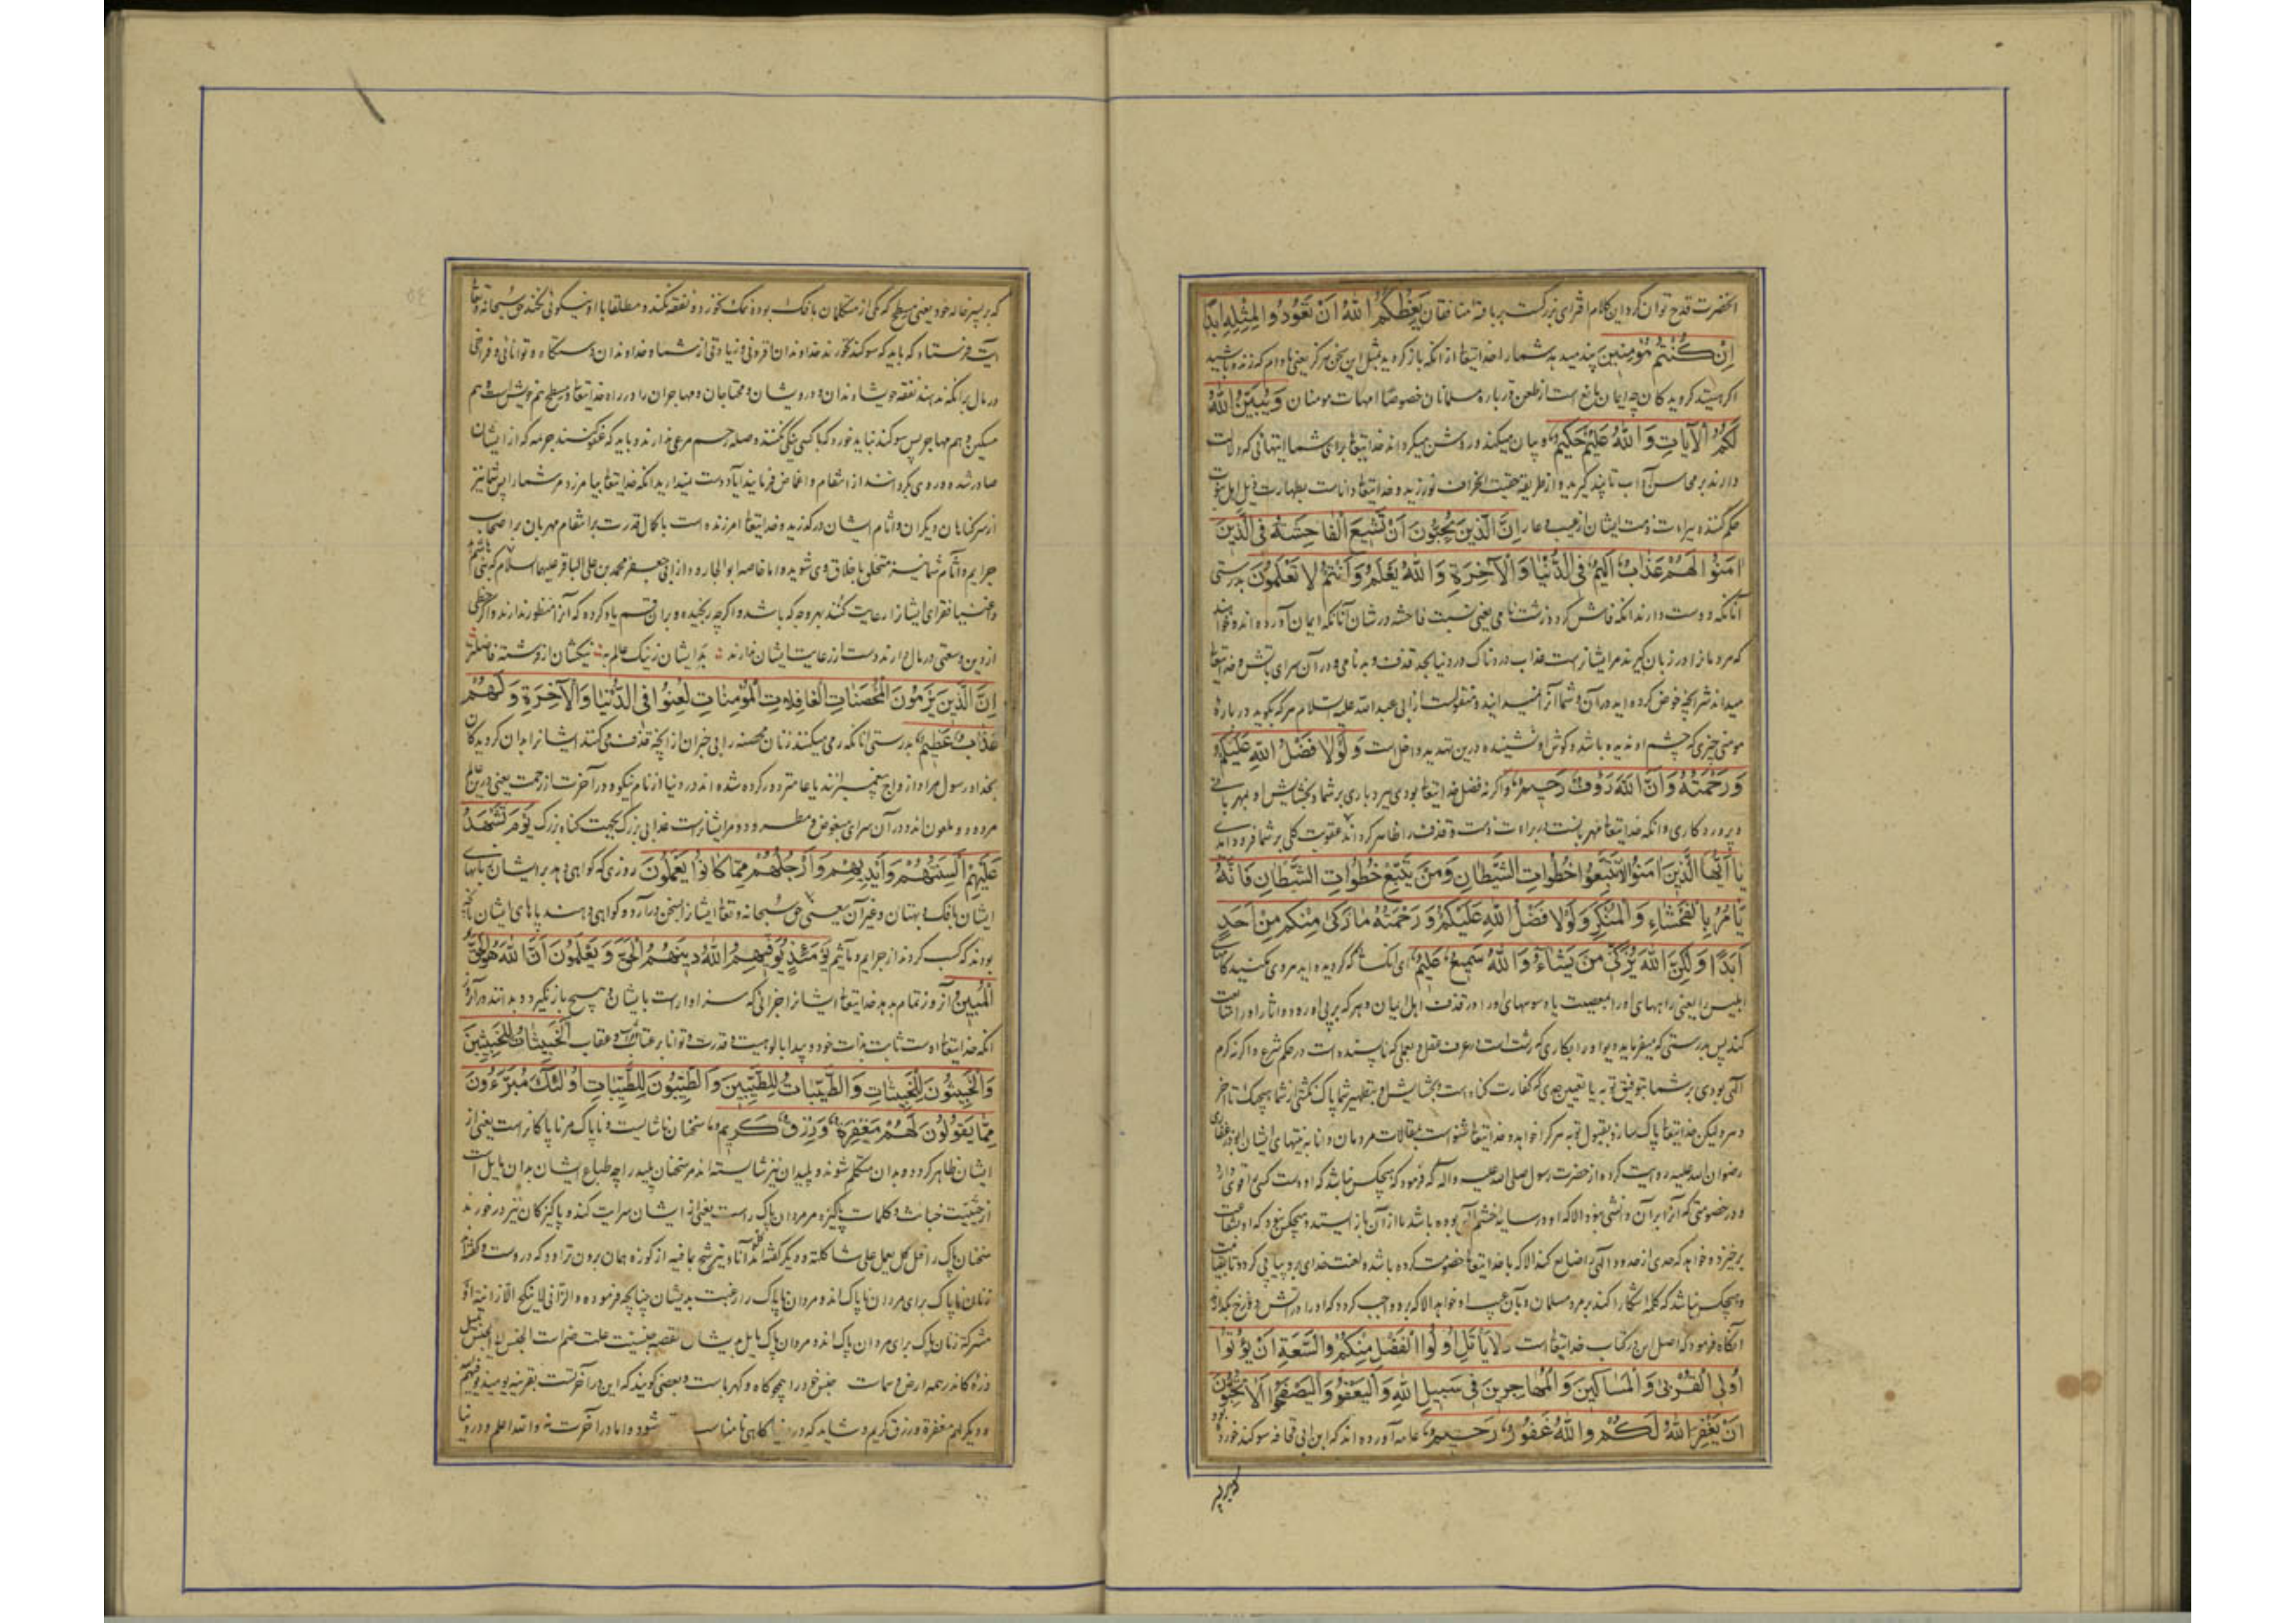 آنحضرت قدح توان کرد این کلام افترای بزرگست بربافته منافقان يَعِظُكُمُ اللهُ اَنْ تَعُودُوا لِمِثْلِهِ اَبَدًا
اِنْ كُنْتُمْ مُؤمِنِينَ پند میدهد شما را خدایتعالی از آنکه باز گردید بمثل این سخن هرگز یعنی مادام که زنده باشید
اگر هستید گرویدگان چه ایمان مانع است از طعن در باره مسلمانان خصوصًا امهات مومنان وَيُبَيِّنُ اللهُ
لَكُمُ الْآيَاتِ وَاللهُ عَلِيمٌ حَكِيمٌ و بیان میکند و روشن میگرداند خدایتعالی برای شما آیتهائی که دلالت
دارند بر محاسن آداب تا پند گیرید و از طریقه حقیقت انحراف نورزید و خدایتعالی داناست بطهارت
حکم کننده ببراءت ذمت ایشان از عیب و عار اِنَّ الَّذِينَ يُحِبُّونَ اَنْ تَشِيعَ الْفَاحِشَةُ فِى الَّذِينَ
اٰمَنُوا لَهُمْ عَذَابٌ اَلِيمٌ فِى الدُّنْيَا وَالْآخِرَةِ وَاللهُ يَعْلَمُ وَاَنْتُمْ لَا تَعْلَمُونَ بدرستی
آنانکه دوست دارند آنکه فاش گردد زشت نامی یعنی نسبت فاحشه در شان آنانکه ایمان آورده اند
که مردمانرا در زبان گیرند مر ایشانراست عذاب دردناک در دنیا بحد قذف و بدنامی و در آن سرای بآتش و خدایتعالی
میداند شر آنچه خوض کرده اید در آن و شما آنرا نمیدانید و منقولست از ابی عبد الله علیه السلام هر که بگوید در باره
مومنی چیزی که چشم او ندیده باشد و گوش او نشنیده درین تهدید داخل است وَلَوْلَا فَضْلُ اللهِ عَلَيْكُمْ
وَرَحْمَتُهُ وَاَنَّ اللهَ رَؤُفٌ رَحِيمٌ و اگر نه فضل خدایتعالی بودی ببردباری بر شما و بخشایش او بمهربانی
و پروردگاری و آنکه خدایتعالی مهربانست در براءت ذمت قذف را ظاهر گرداند عقوبت کلی بر شما فرود آمدی
يَا اَيُّهَا الَّذِينَ اٰمَنُوا لَا تَتَّبِعُوا خُطُوَاتِ الشَّيْطَانِ وَمَنْ يَتَّبِعْ خُطُوَاتِ الشَّيْطَانِ فَاِنَّهُ
يَأمُرُ بِالْفَحْشَاءِ وَالْمُنْكَرِ وَلَوْلَا فَضْلُ اللهِ عَلَيْكُمْ وَرَحْمَتُهُ مَا زَكىٰ مِنْكُمْ مِنْ اَحَدٍ
اَبَدًا وَلٰكِنَّ اللهَ يُزَكِّى مَنْ يَشَاءُ وَاللهُ سَمِيعٌ عَلِيمٌ ای کسانی که گرویده اید پیروی مکنید
ابلیس را یعنی راههای او را بمعصیت یا وسوسهای او را در قذف اهل ایمان و هر که بر پی او رود و آثار او را متابعت
کند پس بدرستی که میفرماید دیو او را بکاری که زشت است در عرف عقل و بعملی که ناپسنده است در حکم شرع و اگر نه کرم
الهی بودی بر شما بتوفیق توبه یا تعیین حدی که کفارت گناه است و بخشایش او بتطهیر شما پاک نگشتی از شما هیچیک تا آخر
دهر ولیکن خدایتعالی پاک سازد بقبول توبه هر کرا خواهد و خدایتعالی شنواست مقالات مردمان و دانا به نیتهای ایشان
رضوان الله علیه روایت کرده از حضرت رسول صلی الله علیه و آله که فرمود که هیچکس نباشد که
و در خصومتی که
برخیزد و خواهد که حدی از حدود الهی را ضایع کند الا که با خدایتعالی خصومت کرده باشد و لعنت خدای برو پیاپی گردد تا بقیامت
و هیچکس نباشد که کلمه آشکارا کند بر مرد مسلمان و بآن عیب او خواهد الا که برو واجب گردد که او را در آتش دوزخ بگدازد
آنگاه فرمود که اصل این در کتاب خدایتعالی است وَلَا يَأتَلِ اُولُوا الْفَضْلِ مِنْكُمْ وَالسَّعَةِ اَنْ يُؤْتُوا
اُولِى الْقُرْبىٰ وَالْمَسَاكِينَ وَالْمُهَاجِرِينَ فِى سَبِيلِ اللهِ وَالْيَعْفُوا وَالْيَصْفَحُوا اَلَا تُحِبُّونَ
اَنْ يَغْفِرَ اللهُ لَكُمْ وَاللهُ غَفُورٌ رَحِيمٌ عامه آورده اند که ابن ابی قحافه سوگند خورده بود
که بر پسر
که بر پسر خاله خود یعنی مسطح که یکی از متکلمان بافک بوده نمک نخورد و نفقه نکند و مطلقا با او نیکوئی نکند حق سبحانه و تعالی
آیت فرستاد که باید که سوگند نخورند خداوندان افزونی و زیادتی از شما و خداوندان دستگاه و توانائی و فراخی
در مال بر آنکه ندهند نفقه خویشاوندان و درویشان و محتاجان و مهاجران را در راه خدایتعالی و مسطح هم خویش است و هم
مسکین و هم مهاجر پس سوگند نباید خورد که با کسی نیکی نکنند و صله رحم مرعی ندارند و باید که عفو کنند جرمه که از ایشان
صادر شده و روی بگردانند از انتقام و اغماض فرمایند آیا دوست نمیدارید آنکه خدایتعالی بیامرزد مر شما را پس شما نیز
از سر گناهان دیگران و آثام ایشان درگذرید و خدایتعالی آمرزنده است با کمال قدرت بر انتقام مهربان بر اصحاب
جرایم و آثام شما نیز متخلق باخلاق وی شوید و اما خاصه ابو الجارود از ابی جعفر محمد بن علی الباقر علیهما السلام که بنی هاشم
و اغنیا فقرای ایشانرا رعایت کنند بهر وجه که باشد و اگر چه رنجیده و بر آن قسم یاد کرده که آنرا منظور ندارند
از دین و وسعتی در مال دارند دست از رعایت ایشان ندارند بد ایشان ز نیک عالم به نیکشان از فرشته فاضلتر
اِنَّ الَّذِينَ يَرْمُونَ الْمُحْصَنَاتِ الْغَافِلَاتِ الْمُؤمِنَاتِ لُعِنُوا فِى الدُّنْيَا وَالْآخِرَةِ وَلَهُمْ
عَذَابٌ عَظِيمٌ بدرستی آنانکه رمی میکنند زنان محصنه را بی خبران از آنچه قذف می کنند ایشانرا بدان گرویدگان
بخدا و رسول مراد ازواج پیغمبرانند یا عامتر دور کرده شده اند در دنیا از نام نیکو و در آخرت از رحمت یعنی درین عالم
مردود و ملعون اند و در آن سرای مبغوض و مطرود و مر ایشانراست عذابی بزرگ بجهت گناه بزرگ يَوْمَ تَشْهَدُ
عَلَيْهِمْ اَلْسِنَتُهُمْ وَاَيْدِيهِمْ وَاَرْجُلُهُمْ بِمَا كَانُوا يَعْمَلُونَ روزی که گواهی دهد بر ایشان زبانهای
ایشان بافک و بهتان و غیر آن یعنی حق سبحانه و تعالی ایشانرا بسخن درآرد و گواهی دهند پاهای ایشان بآنچه
بودند که کسب کردند از جرایم و مآثم يَوْمَئِذٍ يُوَفِّيهِمُ اللهُ دِينَهُمُ الْحَقَّ وَيَعْلَمُونَ اَنَّ اللهَ هُوَ الْحَقُّ
الْمُبِينُ آنروز تمام بدهد خدایتعالی ایشانرا جزائی که سزاوار است بایشان و هیچ باز نگیرد و بدانند در آنروز
آنکه خدایتعالی اوست ثابت بذات خود و پیدا بالوهیت و قدرت و توانا بر عتاب و عقاب اَلْخَبِيثَاتُ لِلْخَبِيثِينَ
وَالْخَبِيثُونَ لِلْخَبِيثَاتِ وَالطَّيِّبَاتُ لِلطَّيِّبِينَ وَالطَّيِّبُونَ لِلطَّيِّبَاتِ اُولٰئِكَ مُبَرَّءُونَ
مِمَّا يَقُولُونَ لَهُمْ مَغْفِرَةٌ وَرِزْقٌ كَرِيمٌ سخنان ناشایست و ناپاک مر ناپاکانراست یعنی از
ایشان ظاهر گردد و بدان متکلم شوند و پلیدان نیز شایسته اند مر سخنان پلید را چه طباع ایشان بدان مایل است
از حیثیت خباثت و کلمات پاکیزه مر مردان پاک راست یعنی از ایشان سرایت کند و پاکیزگان نیز در خورند
سخنان پاک را قل کل یعمل علی شاکلته و دیگر گفته اند اناء یترشح بما فیه از کوزه همان برون تراود که دروست و گفته اند
زنان ناپاک برای مردان ناپاک اند و مردان ناپاک را رغبت بدیشان چنانچه فرموده و الزانی لا ینکح الا زانیة او
مشرکة زنان پاک برای مردان پاک اند و مردان پاک مایل بدیشان جنسیت علت ضم است الجنس الی الجنس یمیل
ذره کاندر همه ارض و سمات جنس خود را همچو کاه و کهرباست و بعضی گویند که این در آخرتست بقرینه یومئذ یوفیهم
و دیگر لهم مغفرة و رزق کریم و شاید که در دنیا گاهی نامناسب شود و اما در آخرت نه و الله اعلم و در دنیا